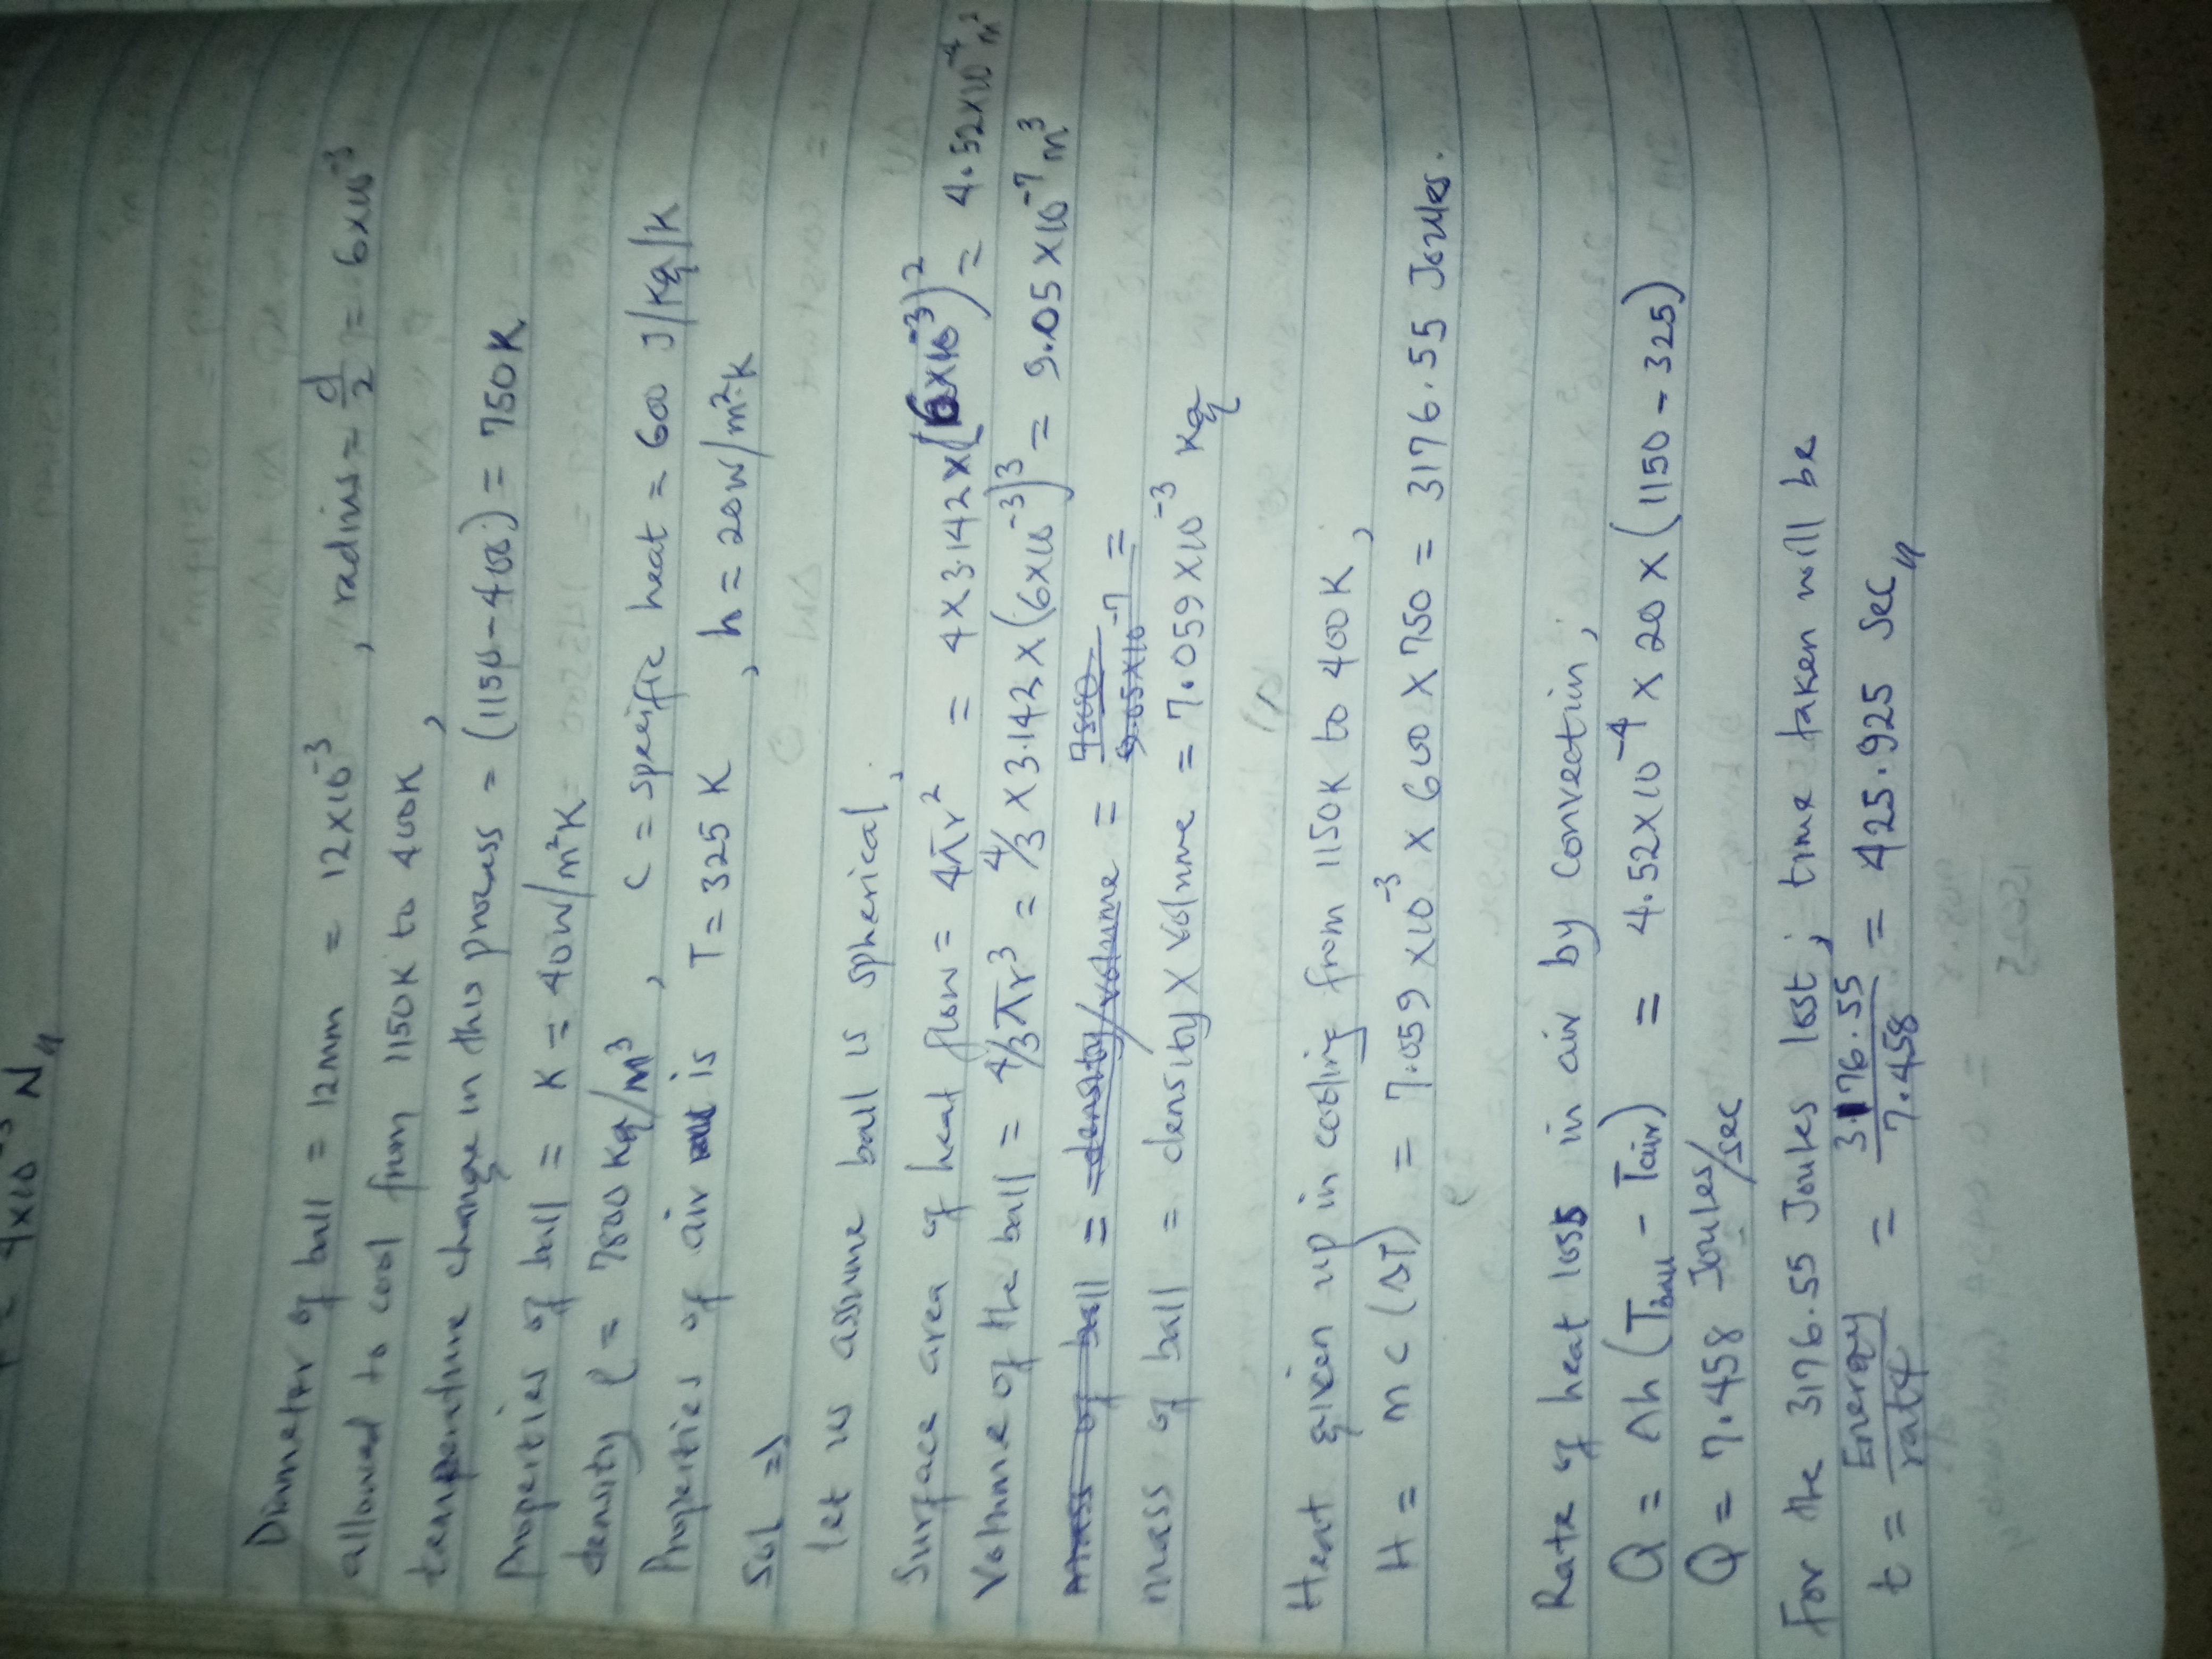 = 4x10⁻³ N //
Diameter of ball = 12mm = 12x10⁻³ , radius = d/2 = 6x10⁻³
allowed to cool from 1150K to 400K,
temperature change in this process = (1150-400) = 750K
Properties of ball = K = 40w/m²K
density ρ = 7800 kg/m³ , C = specific heat = 600 J/kg/K
Properties of air is T = 325 K , h = 20w/m²·K
Sol ⇒
let us assume ball is spherical,
Surface area of heat flow = 4πr² = 4x3.142x(6x10⁻³)² = 4.52x10⁻⁴ m²
Volume of the ball = 4/3πr³ = 4/3 x3.142x(6x10⁻³)³ = 9.05x10⁻⁷ m³
mass of ball = density/volume = 7800/9.05x10⁻⁷ =
mass of ball = density x volume = 7.059x10⁻³ kg
Heat given up in cooling from 1150K to 400K,
H = mc(ΔT) = 7.059x10⁻³ x 600 x 750 = 3176.55 Joules.
Rate of heat loss in air by convection,
Q = Ah(Tball - Tair) = 4.52x10⁻⁴ x 20 x (1150-325)
Q = 7.458 Joules/sec
For the 3176.55 Joules lost; time taken will be
t = Energy/rate = 3176.55/7.458 = 425.925 sec //